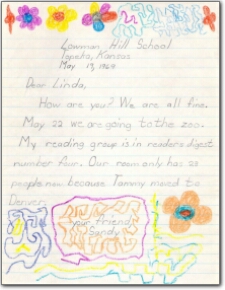 Lowman Hill School
Topeka, Kansas
May 17, 1968
Dear Linda,
How are you? We are all fine.
May 22 we are going to the zoo.
My reading group is in readers digest
number four. Our room only has 23
people now because Tammy moved to
Denver.
your friend,
Sandy